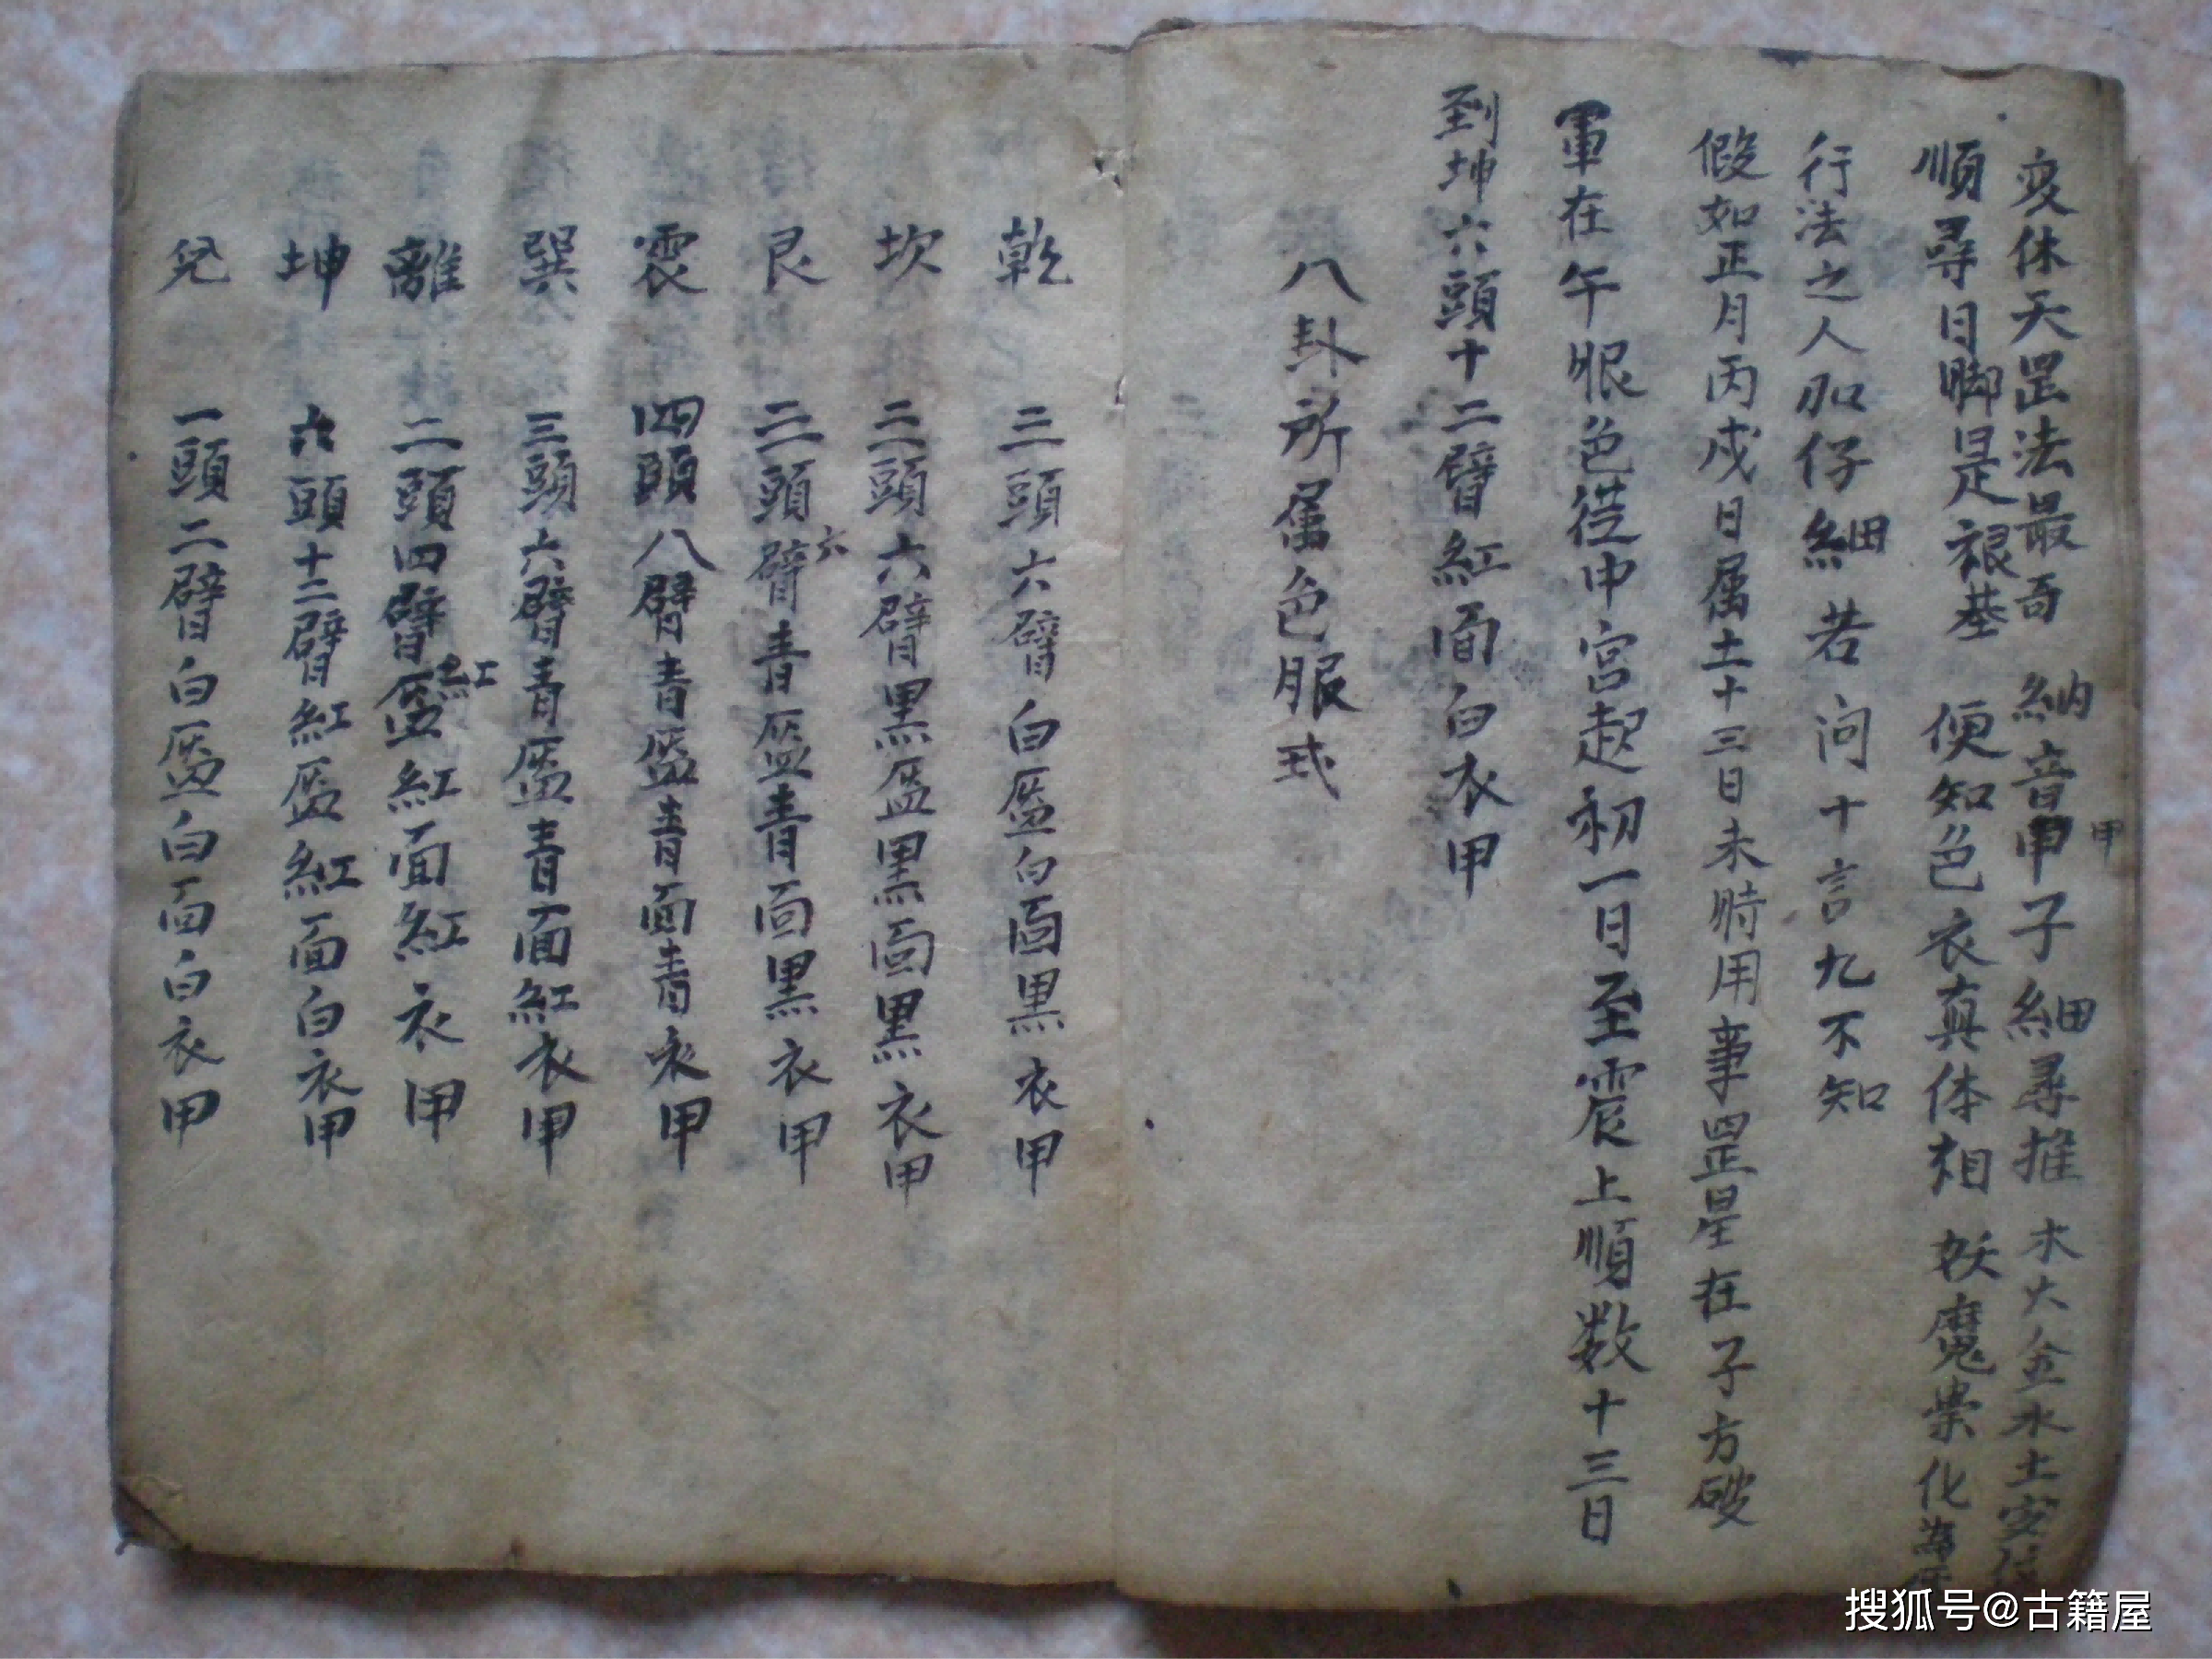 变休天罡法最奇 納音甲子細尋推 木火金水土安
甲
順尋日脚是根基 便知色衣真体相 妖魔祟化
行法之人加仔細若问十言九不知
假如正月丙戌日属土十三日未時用事罡星在子方破
軍在午眼色從中宮起初一日至震上順数十三日
到坤六頭十二臂紅面白衣甲
八卦所属色服式
乾 三頭六臂白盔白面黑衣甲
坎 三頭六臂黑盔黑面黑衣甲
艮 三頭六臂青盔青面黑衣甲
震 四頭八臂青盔青面青衣甲
巽 三頭六臂青盔青面紅衣甲
離 二頭四臂紅盔紅面紅衣甲
坤 六頭十二臂紅盔紅面白衣甲
兌 一頭二臂白盔白面白衣甲
搜狐号@古籍屋